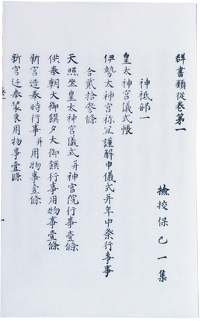 群書類從卷第一
檢挍保己一集
神祇部一
皇太神宮儀式帳
伊勢太神宮祢冝謹解申儀式并年中祭行事事
合貳拾參條
天照坐皇太神宮儀式并神宮院行事壹條
供奉朝大御饌夕大御饌行事用物事壹條
新宮造奉時行事并用物事壹條
新宮遷奉裝束用物事壹條